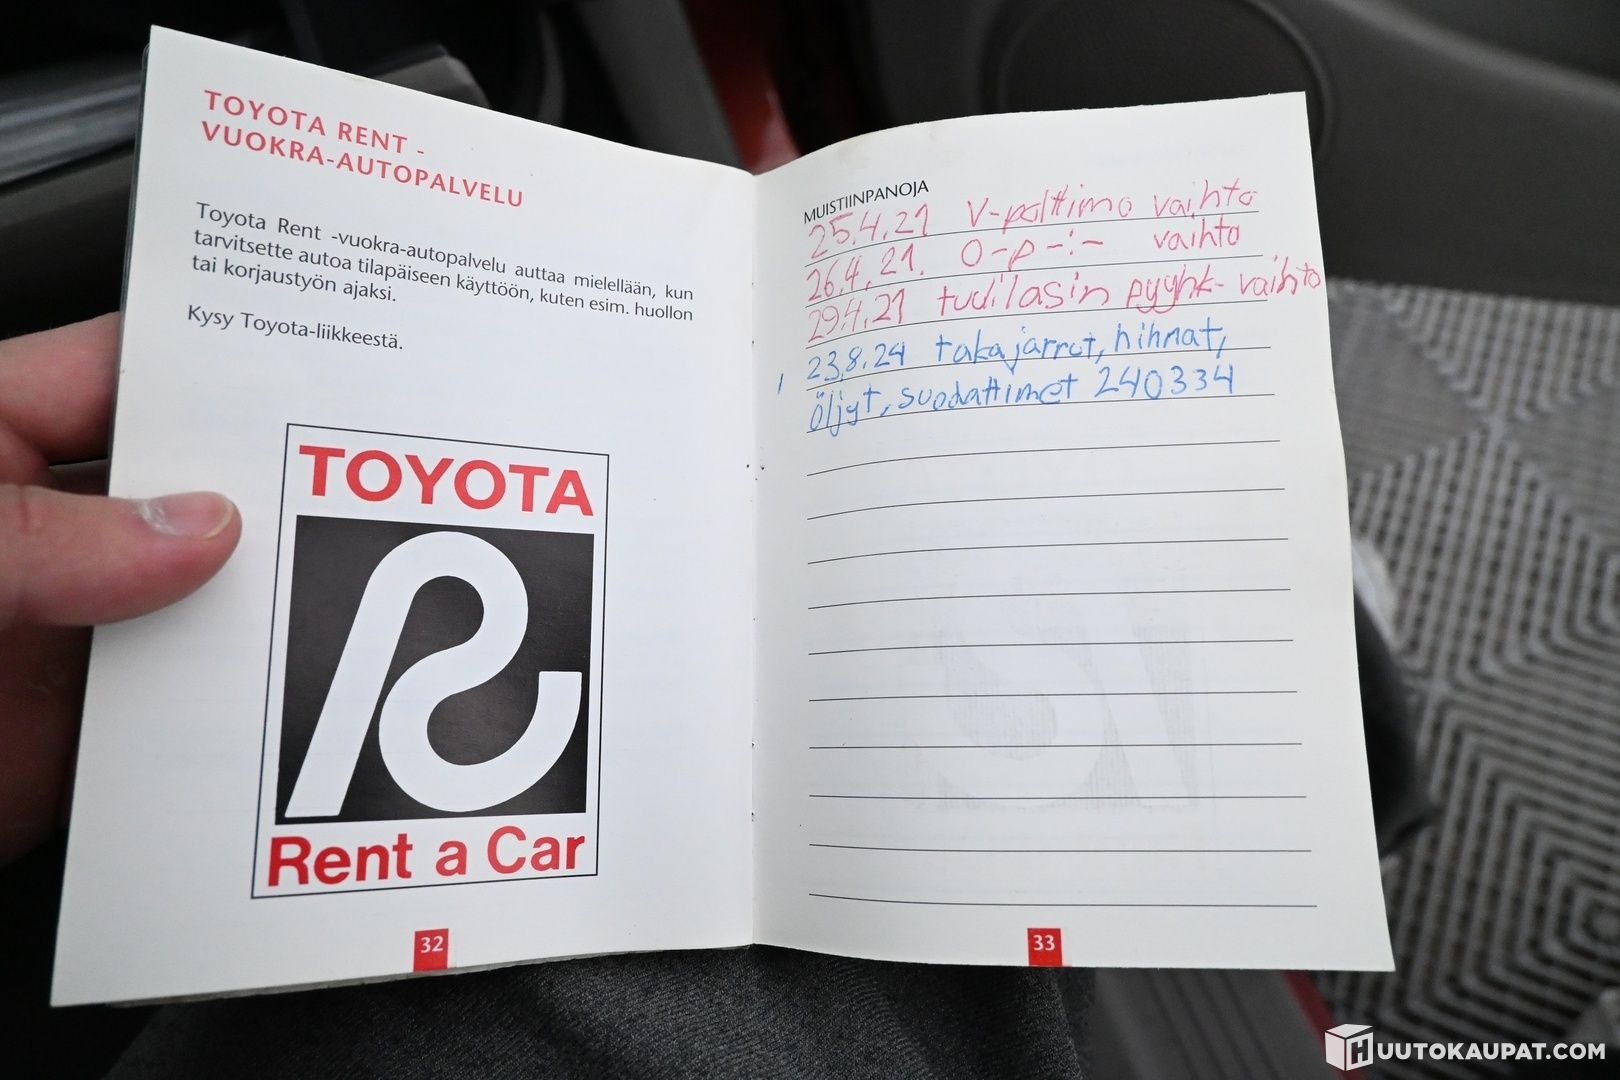 TOYOTA RENT -
VUOKRA-AUTOPALVELU
Toyota Rent -vuokra-autopalvelu auttaa mielellään, kun
tarvitsette autoa tilapäiseen käyttöön, kuten esim. huollon
tai korjaustyön ajaksi.
Kysy Toyota-liikkeestä.
TOYOTA
R
Rent a Car
32
MUISTIINPANOJA
25.4.21 V-polttimo vaihto
26.4.21. O-p-:- vaihto
29.4.21 tuulilasin pyyhk- vaihto
23.8.24 takajarrut, hihnat,
öljyt, suodattimet 240334
33
HUUTOKAUPAT.COM